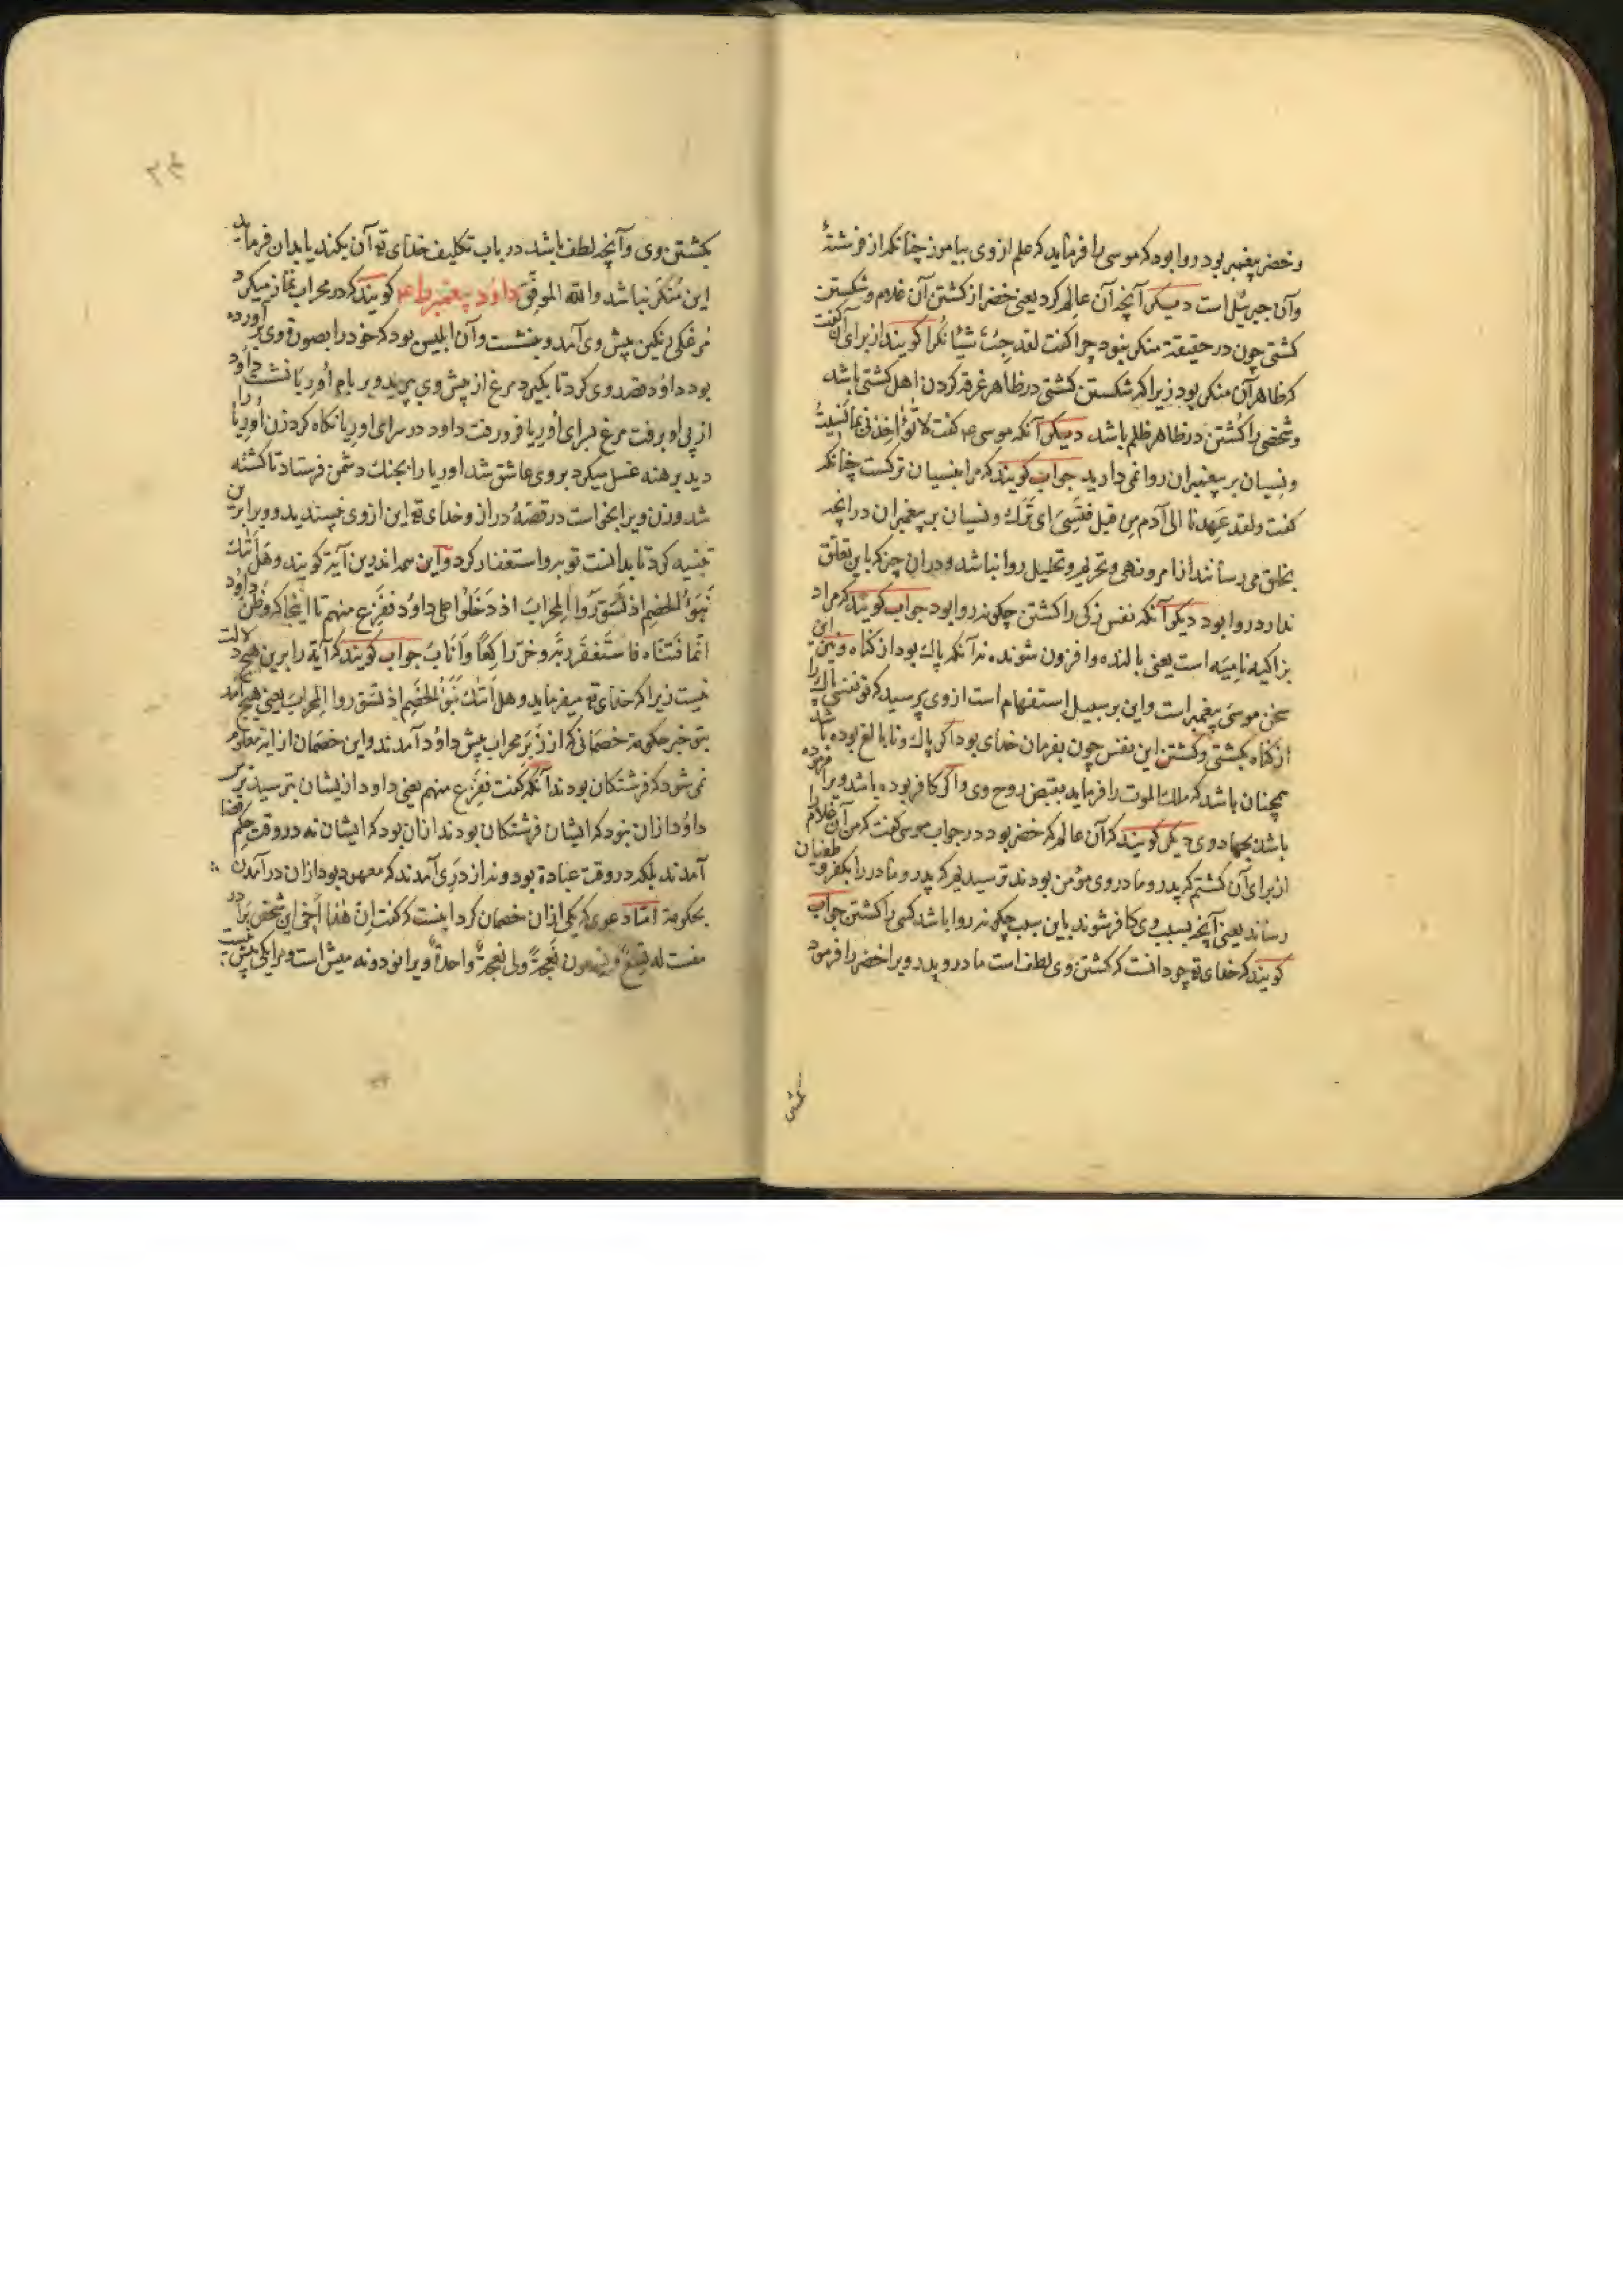 وخضر پیغمبر بود روا بود که موسی را فرماید که علم از وی بیاموز چنانکه از فرشتهٔ
وآن جبرئیل است دیگر آنچه آن عالم کرد یعنی خضر از کشتن آن غلام و شکستن
کشتی چون در حقیقة منکر نبود چرا کفت لقد جِئتَ شیئا نُکرا کویند از برای آن کفت
که ظاهر آن منکر بود زیرا که شکستن کشتی در ظاهر غرقه کردن اهل کشتی باشد
وشخصی را کُشتن در ظاهر ظلم باشد دیگر آنکه موسی ع کفت لا تُؤاخِذنی بما نَسیتُ
ونِسیان بر پیغمبران روا نمی دارید جواب کویند که مراد بنسیان ترکست چنانکه
کفت ولقد عَهِدنا الی آدم مِن قبل فنَسِیَ ای تَرَکَ ونسیان بر پیغمبران در آنچه
بخلق می رسانند از امر و نهی و تحریم و تحلیل روا نباشد و در آن چیز که باین تعلّق
ندارد روا بود دیگر آنکه نفس زکی را کشتن چکونه روا بود جواب کویند که مراد
بزاکیه نامِیَه است یعنی بالنده وافزون شونده نه آنکه پاک بود از کناه و نیز این
سخن موسی پیغمبر است واین بر سبیل استفهام است از وی پرسید که تو نفسی پاک را
از کناه بکشتی وکشتن این نفس چون بفرمان خدای بود اکر پاک ونابالغ بوده باشد
همچنان باشد که ملک الموت را فرماید بقبض روح وی واکر کافر بوده باشد ویرا فرموده
باشد بجهاد وی دیگر کویند که آن عالم که خضر بود در جواب موسی کفت که من آن غلام را
از برای آن کشتم که پدر و مادر وی مؤمن بودند ترسیدیم که پدر و مادر را بکفر و طغیان
رساند یعنی آنچه بسبب وی کافر شوند باین سبب چکونه روا باشد کسی را کشتن جواب
کویند که خدای تع چو دانست که کشتن وی لطف است مادر و پدر ویرا خضر را فرمود
بکشتن وی وآنچه لطف باشد در باب تکلیف خدای تع آن بکند یا بدان فرماید
این مُنکَر نباشد والله الموفِّق داوُد پیغمبر را ع کویند که در محراب نماز میکرد
مُرغکی رنکین پیش وی آمد و بنشست وآن ابلیس بود که خود را بصورة وی برآورده
بود داوُد قصد وی کرد تا بکیرد مرغ از پیش وی بپرید و بر بام اُوریا نشست داوُد
از پی او برفت مرغ بسرای اُوریا فرو رفت داود در سرای اوریا نکاه کرد زن اُوریا را
دید برهنه غسل میکرد بر وی عاشق شد اوریا را بجنک دشمن فرستاد تا کشته
شد و زن ویرا بخواست در قصّهٔ دراز و خدای تع این از وی نپسندید و ویرا برین
تنبیه کرد تا بدانست توبه و استغفار کرد واین همه اندرین آیة کویند وهَل اَتیٰکَ
نَبَؤُا الخَصمِ اِذ تَسَوَّرُوا المِحرابَ اذ دَخَلُوا علی داوُد فَفَزِعَ منهم تا اینجا که وظَنَّ داوُد
انّما فَتَنّاه فاستَغفَرَ ربَّه وخَرَّ راکِعًا وَاَنابَ جواب کویند که آیة را برین هیچ دلالت
نیست زیرا که خدای تع میفرماید وهل اَتیٰکَ نَبَؤُا الخَصمِ اِذ تسوّروا المحراب یعنی هیچ آمد
بتو خبر حکومة خصمانی که از زَبَر محراب پیش داوُد آمدند واین خصمان از آیة معلوم
نمی شود که فرشتکان بودند آنکه کفت فَفَزِعَ منهم یعنی داود ازیشان بترسید ترس
داوُد از آن نبود که ایشان فرشتکان بودند از آن بود که ایشان نه در وقت حکم قضا
آمدند بلکه در وقت عبادة بود و نه از دَرِی آمدند که معهود بود از آن در آمدن
بحکومة امّا دعوی که یکی از آن خصمان کرد اینست که کفت اِنّ هٰذا اَخی این شخص برادر
منست له تِسعٌ وتِسعون نَعجَةً ولی نعجةٌ واحدةٌ ویرا نود و نه میش است و مرا یکی میش است